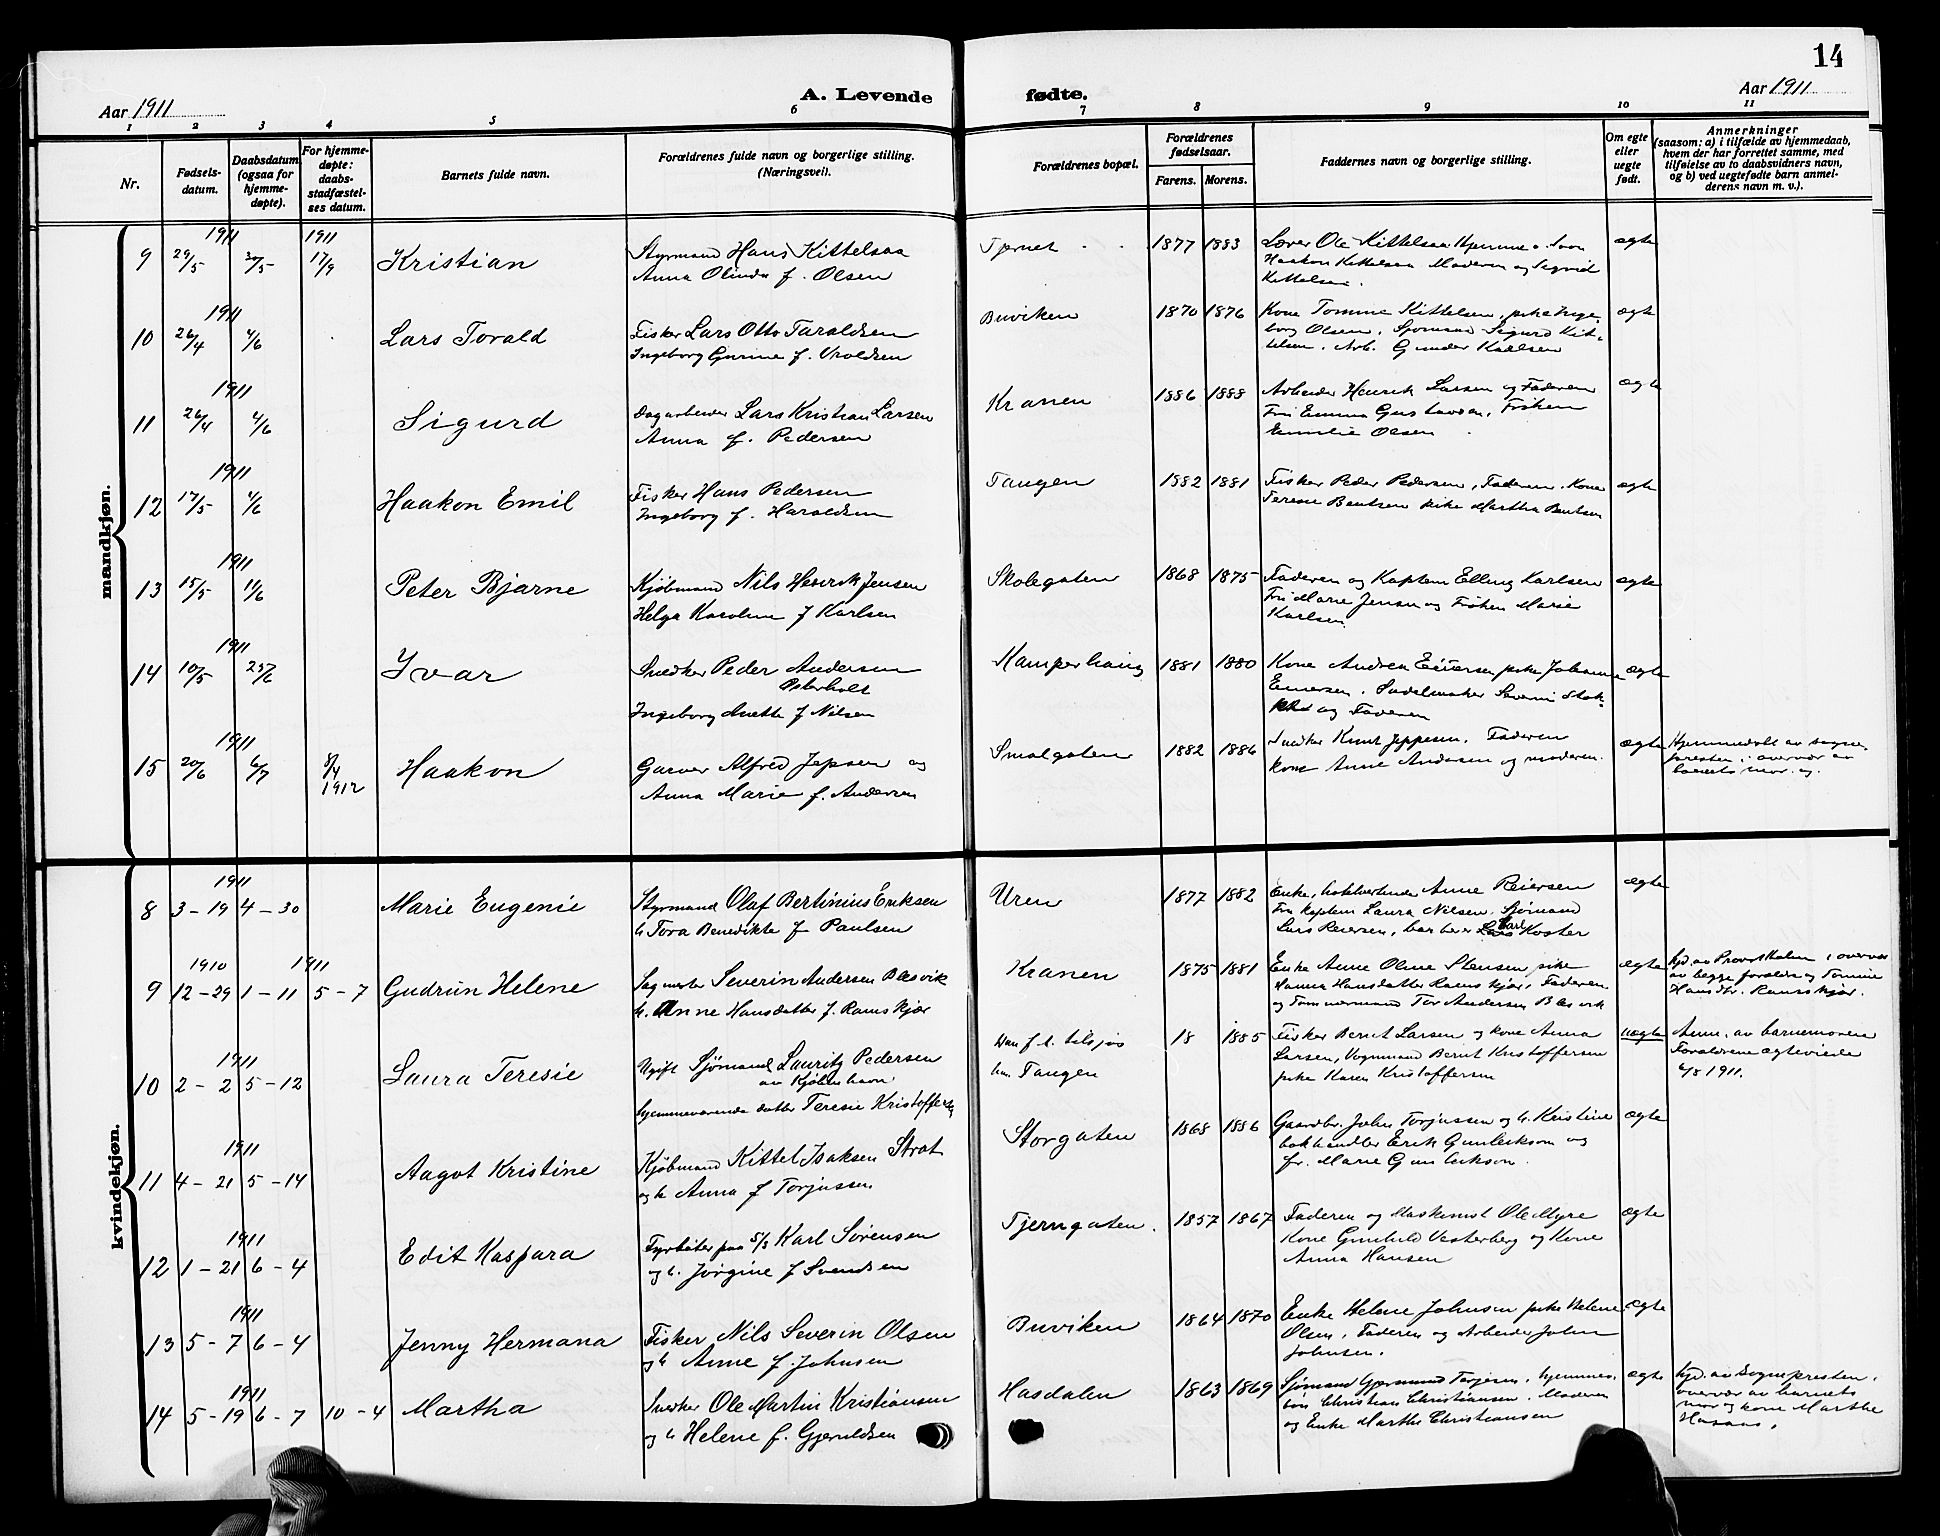 14
Aar 1911
A. Levende fødte.
Aar 1911
1 2 3 4 5 6 7 8 9 10 11
Nr.
Fødsels-
datum.
Daabsdatum
(ogsaa for
hjemme-
døpte).
For hjemme-
døpte:
daabs-
stadfæstel-
ses datum.
Barnets fulde navn.
Forældrenes fulde navn og borgerlige stilling.
(Næringsvei).
Forældrenes bopæl.
Forældrenes
fødselsaar.
Farens. Morens.
Faddernes navn og borgerlige stilling.
Om egte
eller
uegte
født.
Anmerkninger
(saasom: a) i tilfælde av hjemmedaab,
hvem der har forrettet samme, med
tilføielse av to daabsvidners navn,
og b) ved uegtefødte barn anmel-
derens navn m. v.).
mandkjøn.
1911 1911
9 29/5 17/9 Kristian
Styrmand Hans Kittelsaa
Anna Olinda f. Olsen
Tjernet 1877 1883
Ole Kittelsaa
Haakon Kittelsaa Moderen og Sigrid
Kittelsen.
ægte
1911
10 26/4 4/6 Lars Torald
Fisker Lars Otto Taraldsen
Ingeborg Gurine f. Uvoldsen
Buviken 1870 1876
Kone Tomine Kittelsen, pike Inge-
borg Olsen, Sjømand Sigurd Kit-
telsen. Arb. Gunder Karlsen
ægte
1911
11 26/4 4/6 Sigurd
Dagarbeider Lars Kristian Larsen
Anna f. Pedersen
Kranen 1886 1888
Arbeider Henrik Larsen og Faderen
Fru Emma Gustavsen, Frøken
Emilie Olsen
ægte
1911
12 17/5 4/6 Haakon Emil
Fisker Hans Pedersen
Ingeborg f. Haraldsen
Tangen 1882 1881
Fisker Peder Pedersen, Faderen. Kone
Terese Bentsen pike Martha Bentsen
ægte
1911
13 15/5 11/6 Peter Bjarne
Kjøbmand Nils Henrik Jensen
Helga Karoline f Karlsen
Skolegaten 1868 1875
Faderen og Kaptein Elling Karlsen
Fru Marie Jensen og Frøken Marie
Karlsen.
ægte
1911
14 10/5 25/6 Yvar
Snedker Peder Andersen
Osterholt
Ingeborg Anette f Nilsen
Kamperhaug 1881 1880
Kone Andrea Einersen pike Johanne
Einersen. Sadelmaker Severin
og Faderen
ægte
1911
15 20/6 6/7 8/4 1912 Haakon
Garver Alfred Jepsen og
Anna Marie f. Andersen
Smalgaten 1882 1886
Snedker Knut Jeppesen. Faderen
kone Anne Andersen og moderen.
ægte
Hjemmedøbt av sogne-
presten i overvær av
barnets mor og
kvindekjøn.
1911
8 3-19 4-30 Marie Eugenie
Styrmand Olaf Bertinius Eriksen
h. Tora Benedikte f Paulsen
Uren 1877 1882
Enke, Anne Reiersen
Fru kaptein Laura Nilsen. Sjømand
Lars Reiersen, barber Carl Koster
ægte
1910 1911
9 12-29 1-11 5-7 Gudrun Helene
Severin Andersen Blesvik
h. Anne Hansdatter f. Ramskjær
Kranen 1875 1881
Enke Anne Oline Stensen pike
Hanna Hansdatter Ramskjær, Faderen
og Tømmermand Tor Andersen Blesvik
ægte
hjd. av Provst Holm i overvær
av begge forældre og Tomine
Hansdtr. Ramskjær.
1911
10 2-2 5-12 Laura Teresie
Ugift Sjømand Lauritz Pedersen
av Kjøbenhavn
hjemmeværende datter Teresie Kristoffersen
Han f. t. tilsjøs
hun Tangen
18 1885
Fisker Bernt Larsen og kone Anna
Larsen, Vognmand Bernt Kristoffersen
pike Karen Kristoffersen
uægte
Anm. av barnemoren
Forældrene ægteviede
6/8 1911.
1911
11 4-21 5-14 Aagot Kristine
Kjøbmand Kittel Isaksen Strat
og h Anna f Torjussen
Storgaten 1868 1886
Gaardbr. John Torjussen og h. Kristine
bokhandler Erik Gunleikson og
fr. Marie Gunleikson.
ægte
1911
12 1-21 6-4 Edit Kaspara
Fyrbøter paa S/S Karl Sørensen
og h. Jørgine f Svendsen
Tjerngaten. 1857 1867
Faderen og Maskinist Ole Myre
Kone Gunhild Vesterberg og Kone
Anna Hansen
ægte
1911
13 5-7 6-4 Jenny Hermana
Fisker Nils Severin Olsen
og h Anne f. Johnsen
Buviken 1864 1870
Enke Helene Johnsen pike Helene
Olsen. Faderen og Arbeider John
Johnsen.
ægte
1911
14 5-19 6-7 10-4 Martha
Snedker Ole Martin Kristiansen
og h Helene f. Gjeruldsen
Hasdalen 1863 1869
Sjømand Gjermund Torjesen, hjemmev.
søn Christian Christiansen. Moderen
og Enke Marthe Christiansen
ægte
hjd. av Sognepresten i
overvær av barnets
mor og kone Marthe